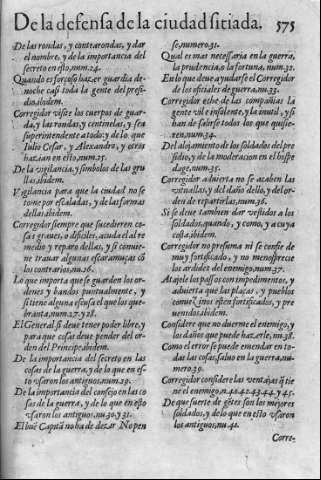 De la defensa de la ciudad sitiada. 575
De las rondas, y contrarondas, y dar
el nombre, y de la importancia del
secreto en esto, num.24.
Quando es forçoso hazer guardia de
noche casi toda la gente del presi-
dio. ibidem.
Corregidor visite los cuerpos de guar-
da, y las rondas, y centinelas, y sea
superintendente a todo: y de lo que
Iulio Cesar, y Alexandro, y otros
hazian en esto, num.25.
De la vigilancia, y simbolos de las gru
llas. ibidem.
Vigilancia para que la ciudad no se
tome por escaladas, y de las formas
dellas. ibidem.
Corregidor siempre que sucedieren co-
sas graues, o dificiles, acuda el al re
medio y reparo dellas, y si conuie-
ne trauar algunas escaramuças cõ
los contrarios, nu.26.
Lo que importa que se guarden los or-
denes y bandos puntualmente, y
si tiene alguna escusa el que los que-
branta, num.27. y 28.
El General si deue tener poder libre, y
para que cosas deue pender del or-
den del Principe. ibidem.
De la importancia del secreto en las
cosas de la guerra, y de lo que en es-
to vsaron los antiguos, num.29.
De la importancia del consejo en las co
sas de la guerra, y de lo que en esto
vsaron los antiguos, nu.30. y 31.
El buē Capitã no ha de dezir No pen
se, numero.31.
Qual es mas necessaria en la guerra,
la prudencia, o la fortuna, num.32.
En lo que deue ayudarse el Corregidor
de los oficiales de guerra, nu.33.
Corregidor eche de las compañias la
gente vil è insolente, y la inutil, y si
han de salirse todos los que quisie-
ren, num.34.
Del alojamiento de los soldados del pre
sidio, y de la moderacion en el hospe
dage, num.35.
Corregidor aduierta no se acaben las
vituallas, y del daño dello, y del or-
den de repartirlas, num.36.
Si se deue tambien dar vestidos a los
soldados, quando, y como, y a cuya
costa. ibidem.
Corregidor no presuma ni se confie de
muy fortificado, y no menosprecie
los ardides del enemigo, num.37.
Ataje los passos con impedimentos, y
aduierta que las plaças, y pueblos
comarcanos esten fortificados, y pre
uenidos. ibidem.
Considere que no duerme el enemigo, y
los daños que puede hazerle, nu.38.
Como el error se puede emendar en to-
das las cosas, saluo en la guerra, nu-
mero.39.
Corregidor considere las ventajas q̃ tie
ne el enemigo, n.41.42.43.44. y 45.
De que suerte de gētes son los mejores
soldados, y de lo que en esto vsaron
los antiguos, nu.41.
Corre-